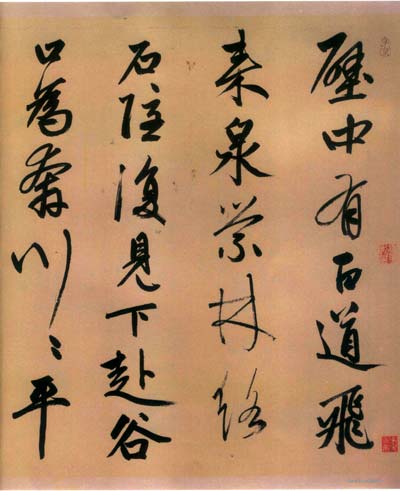 壁中有百道飛
來泉縈林絡
石隱復見下赴谷
口為奔川々平